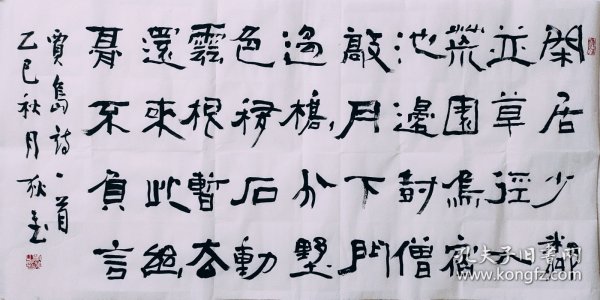 閑居少鄰
並草徑入
荒園鳥宿
池邊樹僧
敲月下門
過橋分野
色移石動
雲根暫去
還來此幽
期不負言
賈島詩一首
乙巳秋月
孔夫子旧书网
www.kongfz.com